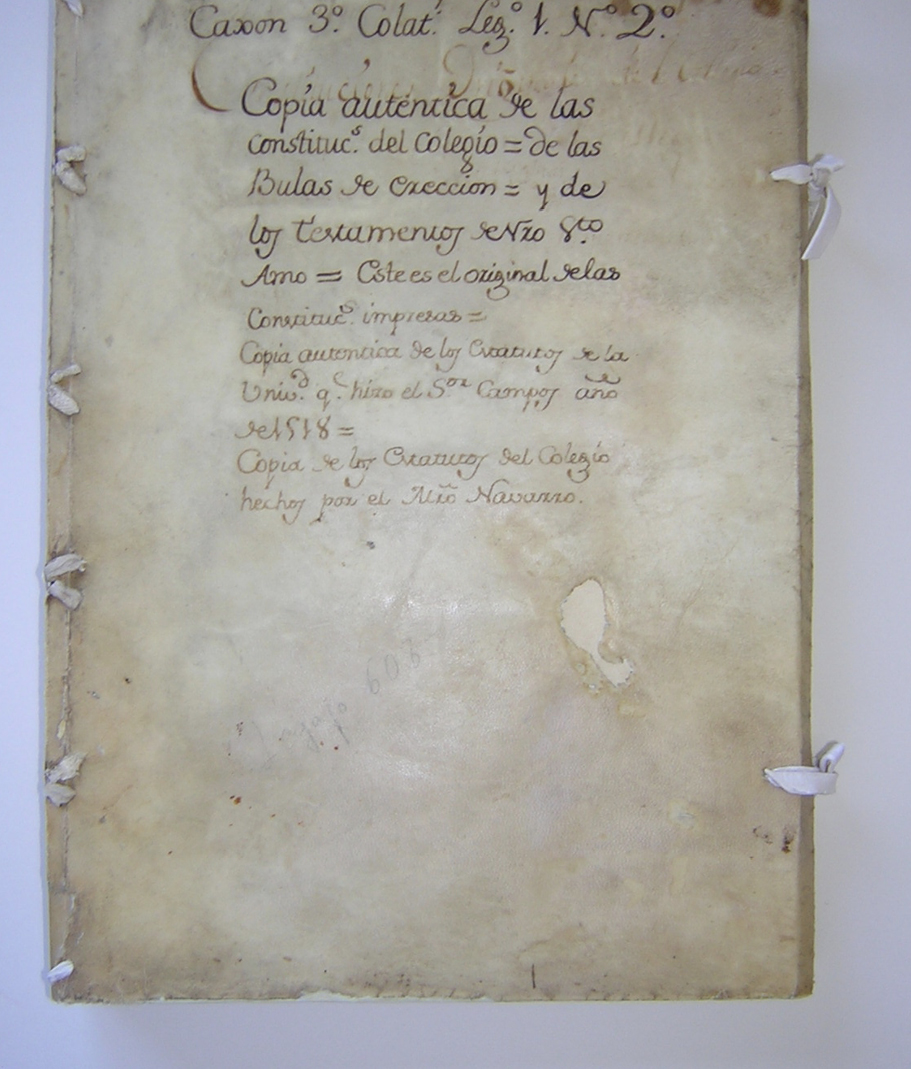 Caxon 3º. Colatˡ. Legº. 1. Nº. 2º.
Copia autentica de las
constitucˢ. del Colegio = de las
Bulas de ereccion = y de
los testamentos de Nrõ Sᵗᵒ.
Amo = Este es el original de las
Constitucˢ. impresas =
Copia autentica de los Estatutos de la
Univᵈ. qᵉ. hizo el Sᵒʳ. Campos año
de 1518 =
Copia de los Estatutos del Colegio
hechos por el Mrõ Navarro.
608